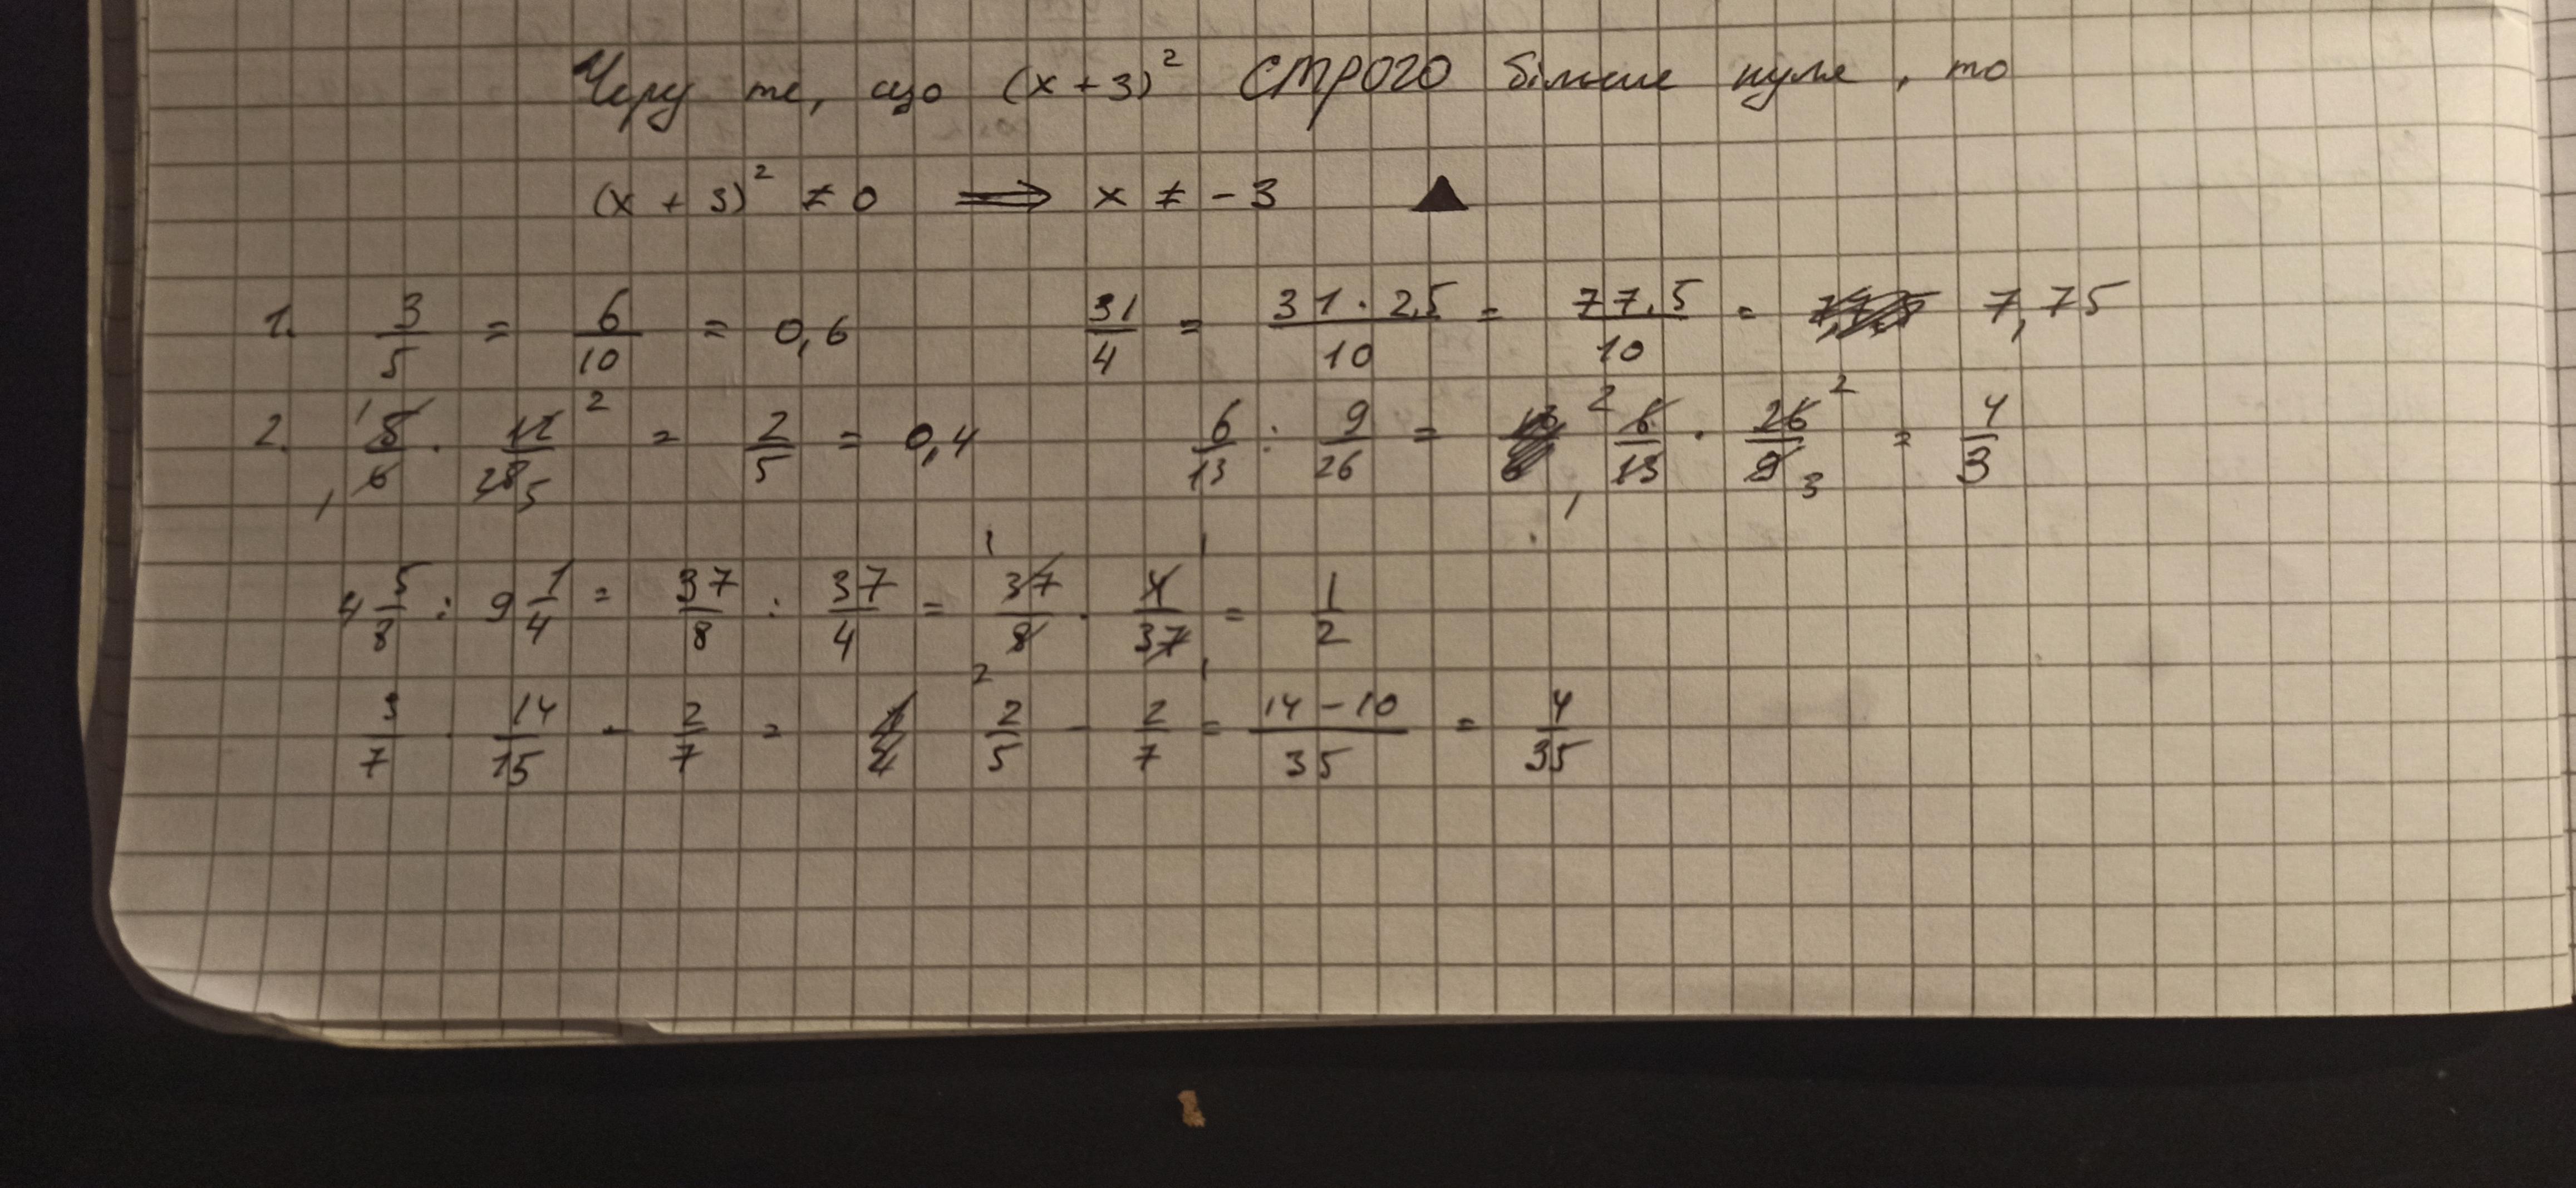 Через те, що (x + 3)² строго більше нуля, то
(x + 3)² ≠ 0 ⟹ x ≠ -3 ▲
1. 3/5 = 6/10 = 0,6 31/4 = 31 · 2,5/10 = 77,5/10 = 7,75
2. 5/6 · 12/25 = 2/5 = 0,4 6/13 : 9/26 = 6/13 · 26/9 = 4/3
4 5/8 : 9 1/4 = 37/8 : 37/4 = 37/8 · 4/37 = 1/2
3/7 · 14/15 - 2/7 = 2/5 - 2/7 = 14 - 10/35 = 4/35